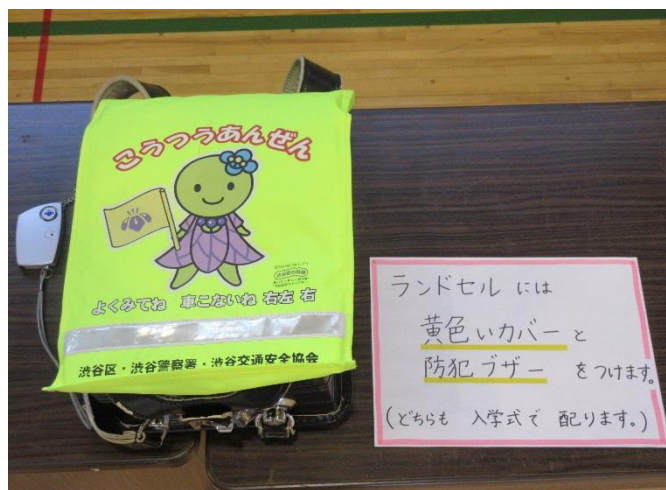 こうつうあんぜん
よくみてね 車こないね 右左右
渋谷区・渋谷警察署・渋谷交通安全協会
ランドセル には
黄色いカバー と
防犯ブザー をつけます。
(どちらも 入学式で 配ります。)